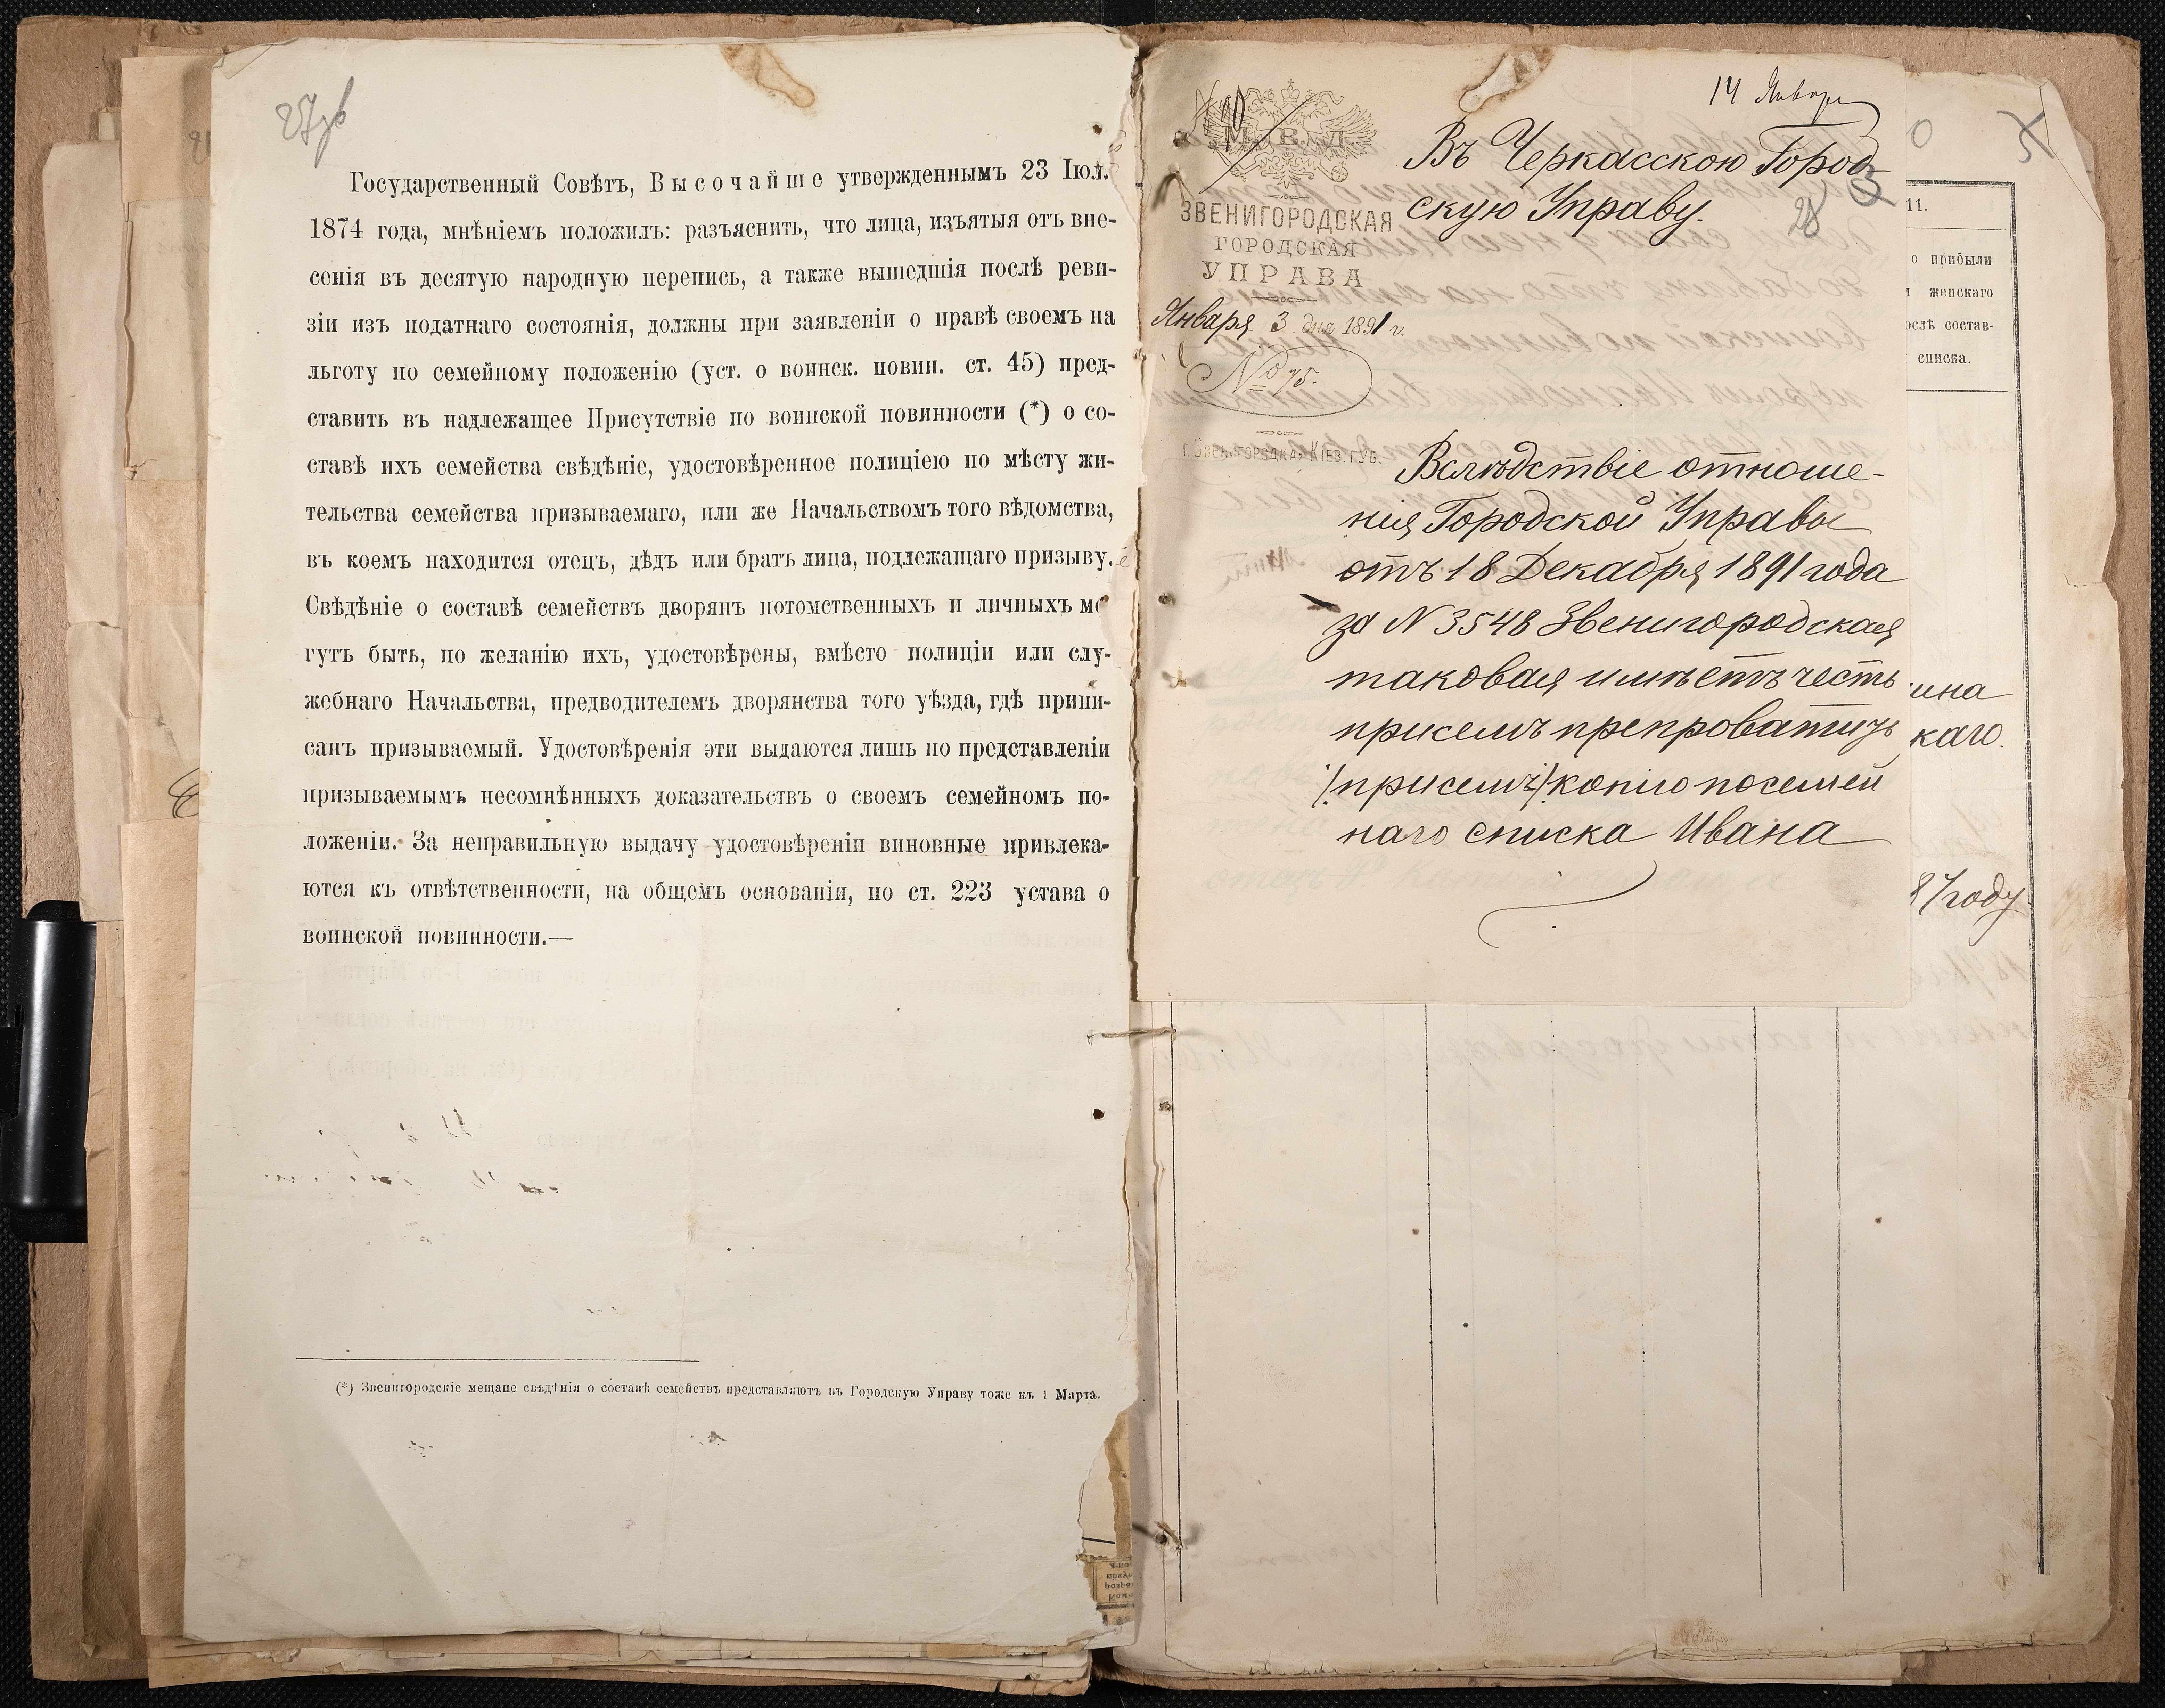 27об
Государственный Совѣтъ, Высочайше утвержденнымъ 23 Іюл.
1874 года, мнѣніемъ положилъ: разъяснить, что лица, изъятыя отъ вне-
сенія въ десятую народную перепись, а также вышедшія послѣ реви-
зіи изъ податнаго состоянія, должны при заявленіи о правѣ своемъ на
льготу по семейному положенію (уст. о воинск. повин. ст. 45) пред-
ставить въ надлежащее Присутствіе по воинской повинности (*) о со-
ставѣ ихъ семейства свѣдѣніе, удостовѣренное полиціею по мѣсту жи-
тельства семейства призываемаго, или же Начальствомъ того вѣдомства,
въ коемъ находится отецъ, дѣдъ или братъ лица, подлежащаго призыву.
Свѣдѣніе о составѣ семействъ дворянъ потомственныхъ и личныхъ мо
гутъ быть, по желанію ихъ, удостовѣрены, вмѣсто полиціи или слу-
жебнаго Начальства, предводителемъ дворянства того уѣзда, гдѣ припи-
санъ призываемый. Удостовѣренія эти выдаются лишь по представленіи
призываемымъ несомнѣнныхъ доказательствъ о своемъ семейномъ по-
ложеніи. За неправильную выдачу удостовѣреніи виновные привлека-
ются къ отвѣтственности, на общемъ основаніи, по ст. 223 устава о
воинской повинности.—
(*) Звенигородскіе мещане свѣдѣнія о составѣ семействъ представляютъ въ Городскую Управу тоже къ 1 Марта.
14 Января
М. В. Д.
Въ Черкасскою Город-
скую Управу.
28
ЗВЕНИГОРОДСКАЯ
ГОРОДСКАЯ
УПРАВА
Января 3 дня 1891 г.
№ 75.
Г. ЗВЕНИГОРОДКА, КІЕВ. ГУБ.
Вслѣдствіе отноше-
нія Городской Управы
отъ 18 Декабря 1891 года
за N 3548 Звенигородская
таковая имѣетъ честь
присемъ препроватить
/присемъ/ копію посемей
наго списка Ивана
11.
о прибыли
женскаго
ослѣ состав-
списка.
ина
каго.
87 году